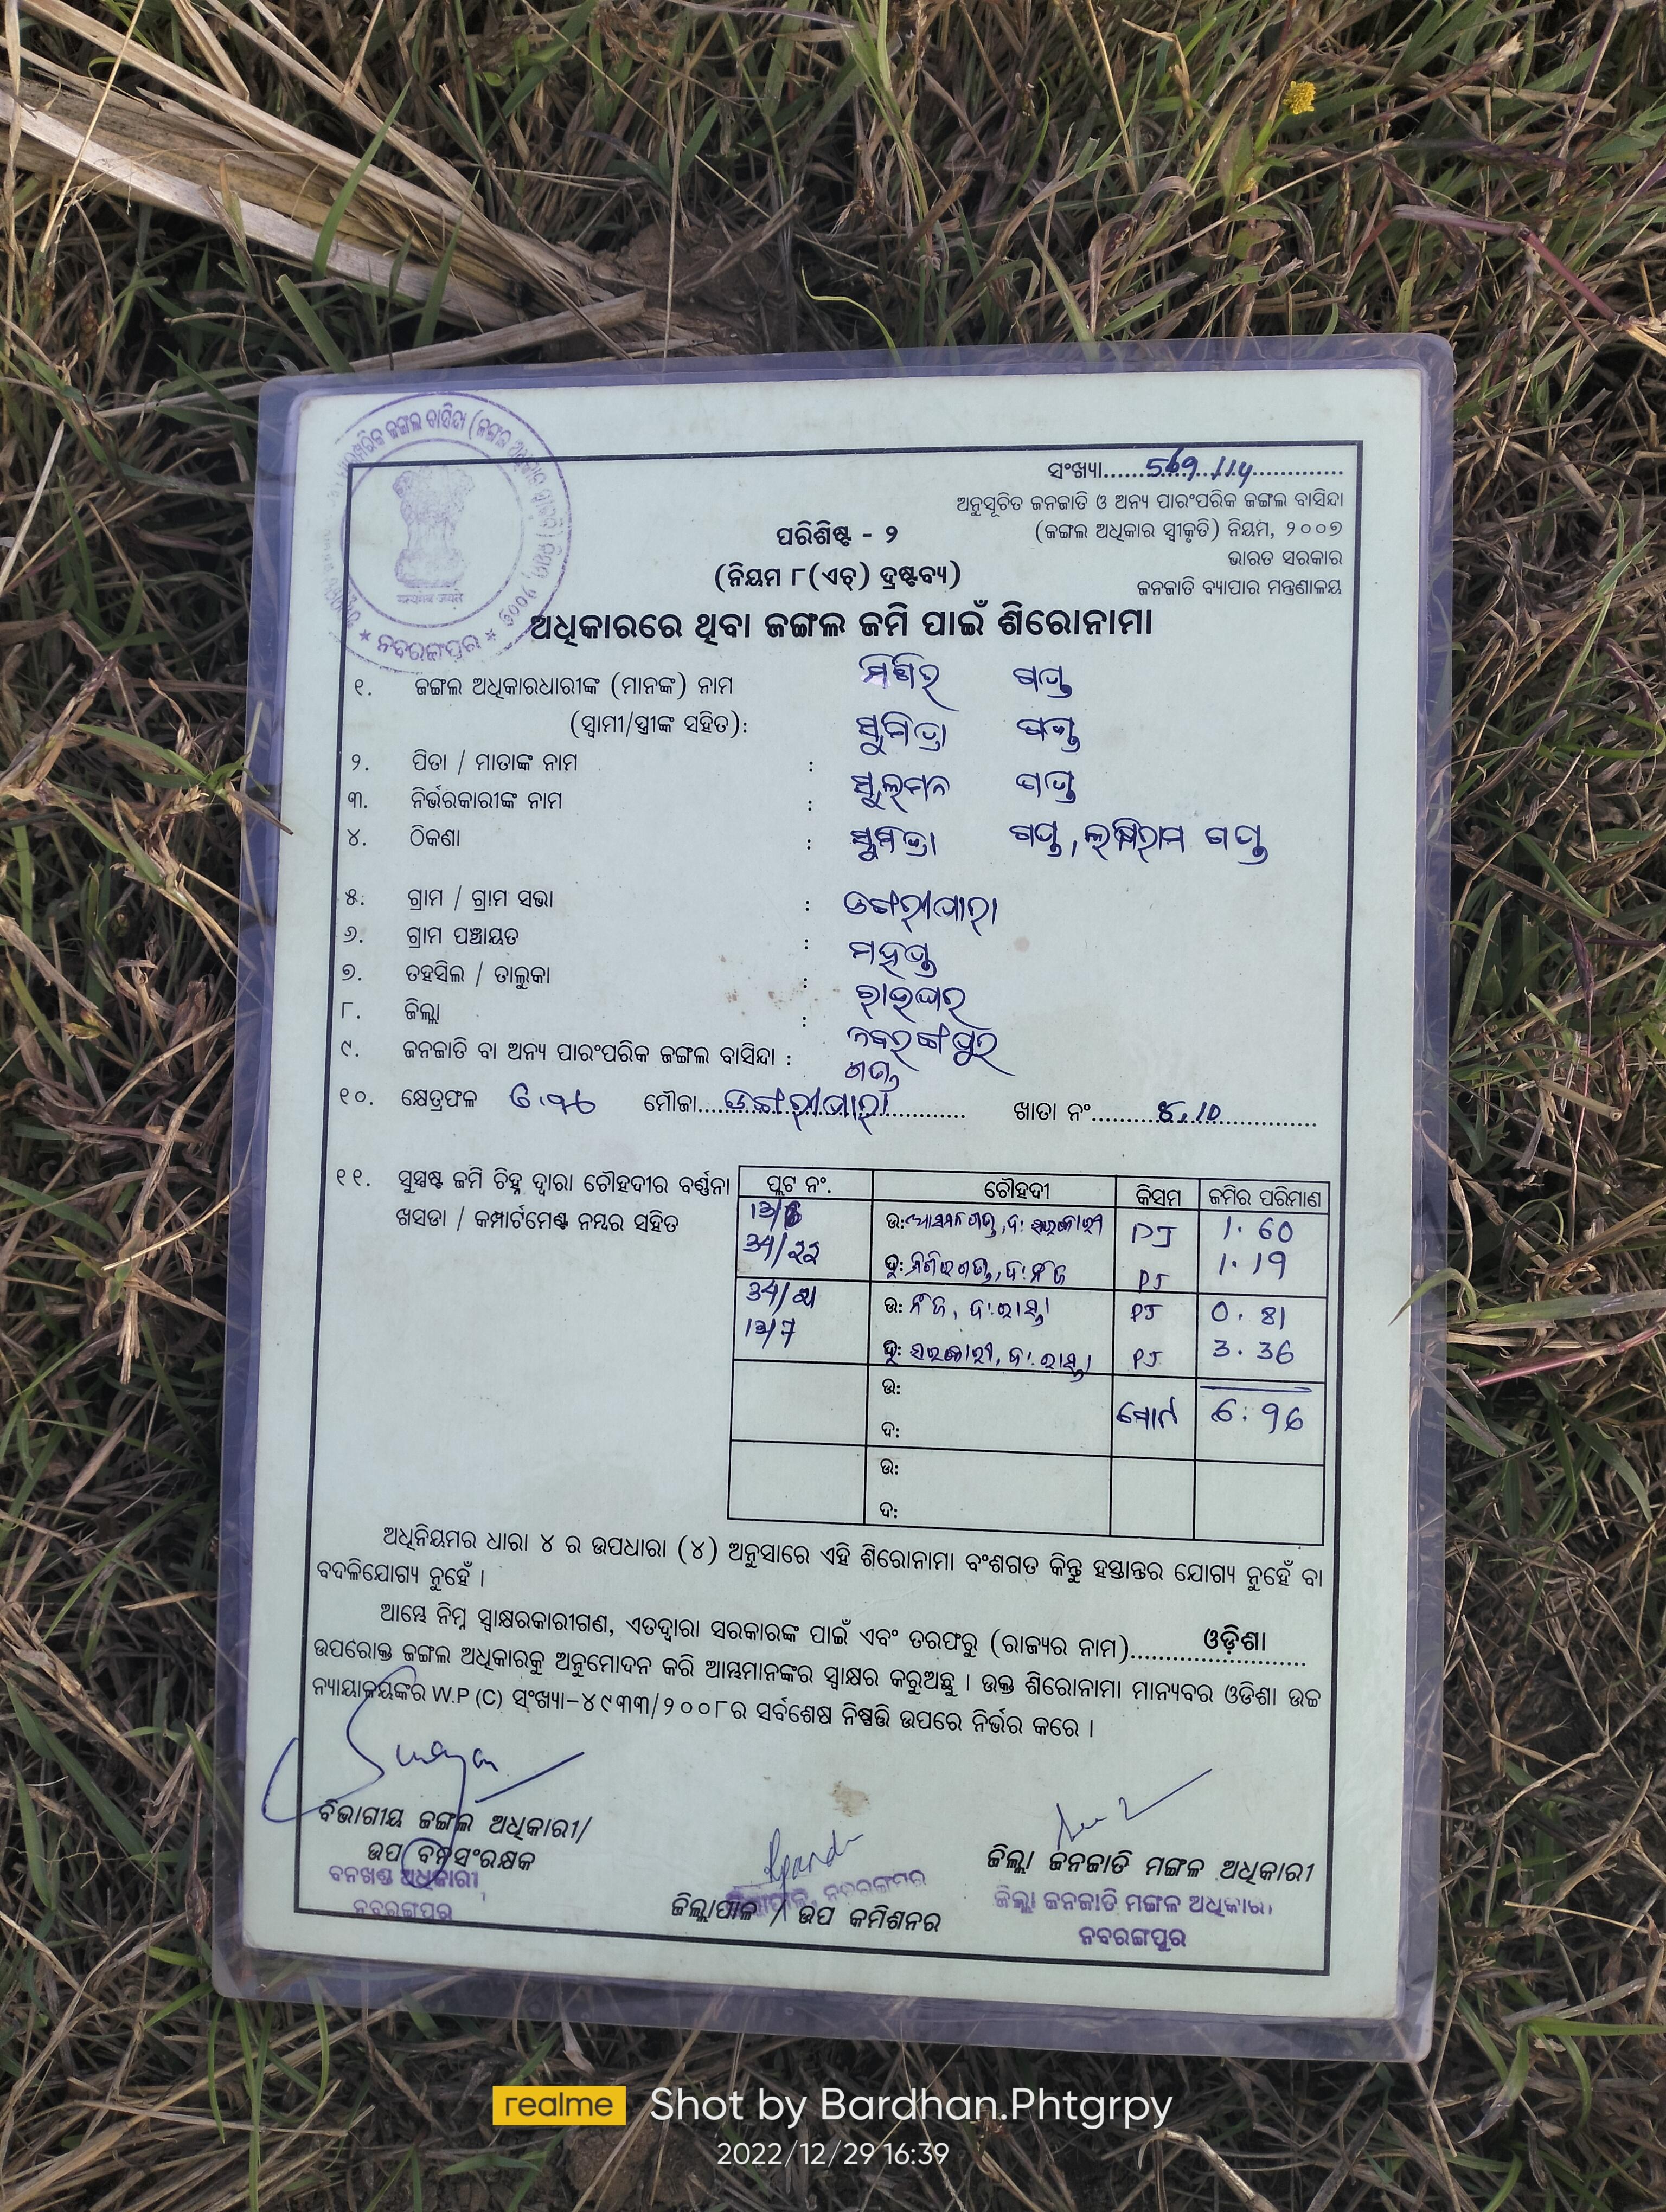 ସଂଖ୍ୟା......569/114..............
ଅନୁସୂଚିତ ଜନଜାତି ଓ ଅନ୍ୟ ପାରଂପରିକ ଜଙ୍ଗଲ ବାସିନ୍ଦା
(ଜଙ୍ଗଲ ଅଧିକାର ସ୍ୱୀକୃତି) ନିୟମ, ୨୦୦୭
ଭାରତ ସରକାର
ଜନଜାତି ବ୍ୟାପାର ମନ୍ତ୍ରଣାଳୟ
ପରିଶିଷ୍ଟ - ୨
(ନିୟମ ୮(ଏଚ୍) ଦ୍ରଷ୍ଟବ୍ୟ)
ଅଧିକାରରେ ଥିବା ଜଙ୍ଗଲ ଜମି ପାଇଁ ଶିରୋନାମା
★ ନବରଙ୍ଗପୁର ★
୧. ଜଙ୍ଗଲ ଅଧିକାରଧାରୀଙ୍କ (ମାନଙ୍କ) ନାମ
(ସ୍ୱାମୀ/ସ୍ତ୍ରୀଙ୍କ ସହିତ): ସୁମିତ୍ରା ଗଣ୍ଡ
୨. ପିତା / ମାତାଙ୍କ ନାମ : ସୁଲମନ ଗଣ୍ଡ
୩. ନିର୍ଭରକାରୀଙ୍କ ନାମ :
୪. ଠିକଣା : ସୁମିତ୍ରା ଗଣ୍ଡ, ଲଖିରାମ ଗଣ୍ଡ
୫. ଗ୍ରାମ / ଗ୍ରାମ ସଭା : ଡଙ୍ଗରୀପାରା
୬. ଗ୍ରାମ ପଞ୍ଚାୟତ :
୭. ତହସିଲ / ତାଲୁକା : ରାଇଘର
୮. ଜିଲ୍ଲା : ନବରଙ୍ଗପୁର
୯. ଜନଜାତି ବା ଅନ୍ୟ ପାରଂପରିକ ଜଙ୍ଗଲ ବାସିନ୍ଦା : ଗଣ୍ଡ
୧୦. କ୍ଷେତ୍ରଫଳ 6.96 ମୌଜା....ଡଙ୍ଗରୀପାରା............ ଖାତା ନଂ................
୧୧. ସୁସ୍ପଷ୍ଟ ଜମି ଚିହ୍ନ ଦ୍ୱାରା ଚୌହଦୀର ବର୍ଣ୍ଣନା
ଖସଡା / କମ୍ପାର୍ଟମେଣ୍ଟ ନମ୍ବର ସହିତ
ପ୍ଲଟ ନଂ. ଚୌହଦୀ କିସମ ଜମିର ପରିମାଣ
ଉ: PJ 1.60
34/22 ଦ: PJ 1.19
ଉ: ନିଜ, ଦ: ରାସ୍ତା PJ 0.81
13/7 ଦ: ସରକାରୀ, ରାସ୍ତା PJ 3.36
ଉ:
ଦ: ମୋଟ 6.96
ଉ:
ଦ:
ଅଧିନିୟମର ଧାରା ୪ ର ଉପଧାରା (୪) ଅନୁସାରେ ଏହି ଶିରୋନାମା ବଂଶଗତ କିନ୍ତୁ ହସ୍ତାନ୍ତର ଯୋଗ୍ୟ ନୁହେଁ ବା
ବଦଳିଯୋଗ୍ୟ ନୁହେଁ ।
ଆମ୍ଭେ ନିମ୍ନ ସ୍ୱାକ୍ଷରକାରୀଗଣ, ଏତଦ୍ୱାରା ସରକାରଙ୍କ ପାଇଁ ଏବଂ ତରଫରୁ (ରାଜ୍ୟର ନାମ)........ଓଡ଼ିଶା........
ଉପରୋକ୍ତ ଜଙ୍ଗଲ ଅଧିକାରକୁ ଅନୁମୋଦନ କରି ଆମ୍ଭମାନଙ୍କର ସ୍ୱାକ୍ଷର କରୁଅଛୁ । ଉକ୍ତ ଶିରୋନାମା ମାନ୍ୟବର ଓଡିଶା ଉଚ୍ଚ
ନ୍ୟାୟାଳୟଙ୍କର W.P (C) ସଂଖ୍ୟା-୪୯୩୩/୨୦୦୮ର ସର୍ବଶେଷ ନିଷ୍ପତ୍ତି ଉପରେ ନିର୍ଭର କରେ ।
ବିଭାଗୀୟ ଜଙ୍ଗଲ ଅଧିକାରୀ/
ଉପ ବନସଂରକ୍ଷକ
ବନଖଣ୍ଡ ଅଧିକାରୀ
ନବରଙ୍ଗପୁର
ଜିଲ୍ଲାପାଳ, ନବରଙ୍ଗପୁର
ଜିଲ୍ଲାପାଳ / ଉପ କମିଶନର
ଜିଲ୍ଲା ଜନଜାତି ମଙ୍ଗଳ ଅଧିକାରୀ
ଜିଲ୍ଲା ଜନଜାତି ମଙ୍ଗଳ ଅଧିକାରୀ
ନବରଙ୍ଗପୁର
realme Shot by Bardhan.Phtgrpy
2022/12/29 16:39